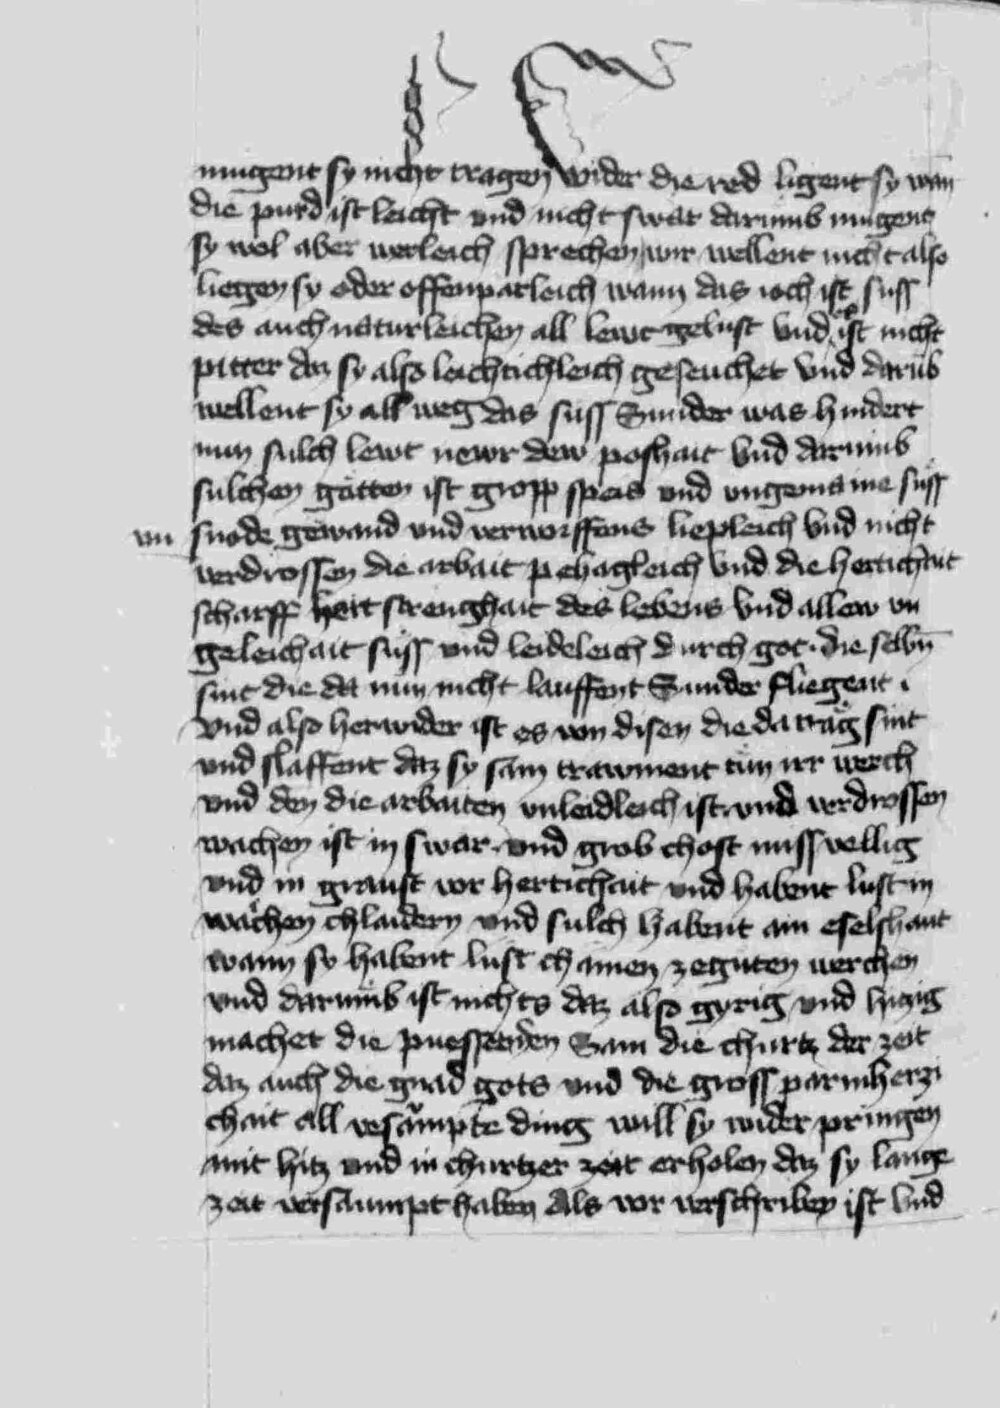 mugent sy nicht tragen wider die red ligent sy wan̄
die purd ist leicht und nicht swar darumb mugent
sy wol aber werleich sprechen wir wellent nicht also
liegen sy oder offenparleich wann das ioch ist suss
des auch naturleichen all lewt gelust vnd es ist nicht
pitter daz sy also leichtichleich geseuchet vnd darūb
wellent sy all weg das suss Sunder was hindert
nun sulch lewt newr dew poshait vnd darumb
sulchen gůtten ist gropp speis und ungemaine suss
vn snode gewand und verworffens liepleich vnd nicht
verdrossen die arbait pehagleich vnd die hertichait
scharff hert strenghait des lebens vnd allew vn
geleichait suss und leideleich durch got. die selbn̄
sint die da nun nicht lauffent Sunder fliegent.
vnd also herwider ist es von disen die da träg sint
und slaffent daz sy sam trawment tůn irr werch
und den die arbaiten unleidleich ist. und verdrossen
wachen ist in swar. und grob chost missvellig
und in graust vor hertichait und habent lust in
wächen chlaidern und sulch habent ain eselshaut
wann sy habent lust chainen ze gůten werchen
und darumb ist nichts daz also gyrig und hiczig
machet die puessenden Sam die churtz der zeit
daz auch die gnad gots und die gross parmherzi
chait all versaumpte ding will sy wider pringen
mit hitz und in churtzer zeit erholen daz sy lange
zeit versaumpt haben Als vor verschriben ist vnd